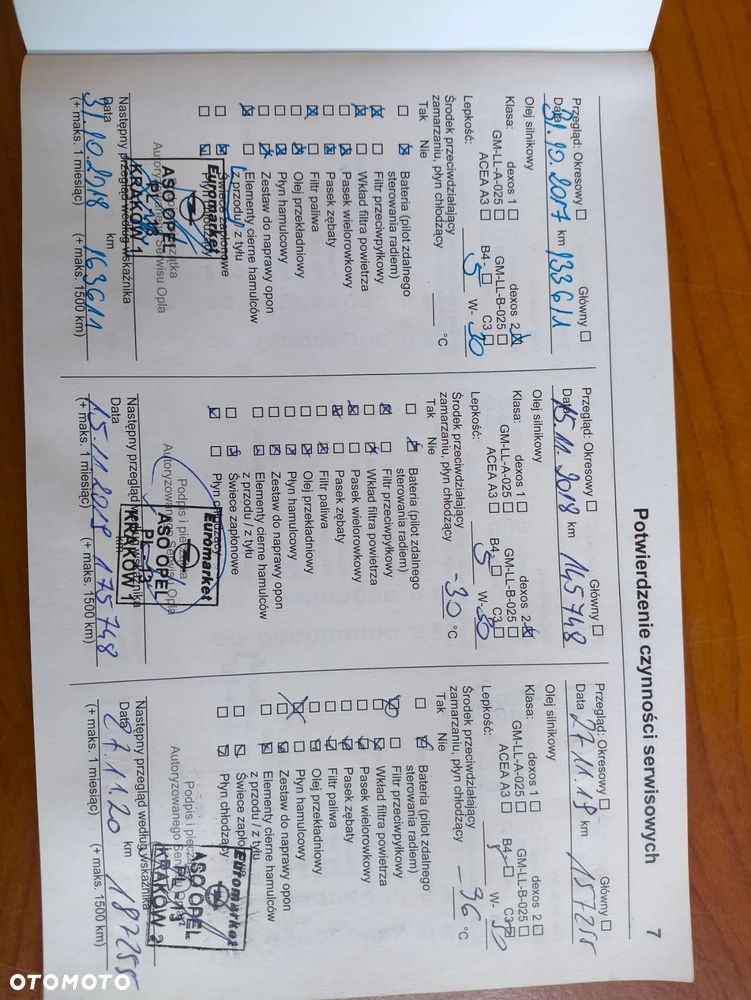 Potwierdzenie czynności serwisowych 7
Przegląd: Okresowy Główny
Data 31.10.2017 km 133611
Olej silnikowy
Klasa: dexos 1 dexos 2
GM-LL-A-025 GM-LL-B-025
ACEA A3 B4 C3
Lepkość: 5 W- 30
Środek przeciwdziałający
zamarzaniu, płyn chłodzący °C
Tak Nie
Bateria (pilot zdalnego
sterowania radiem)
Filtr przeciwpyłkowy
Wkład filtra powietrza
Pasek wielorowkowy
Pasek zębaty
Filtr paliwa
Olej przekładniowy
Płyn hamulcowy
Zestaw do naprawy opon
Elementy cierne hamulców
z przodu / z tyłu
Świece zapłonowe
Płyn chłodzący
Autoryzowanego Serwisu Opla
Euromarket
ASO OPEL
KRAKÓW 1
Następny przegląd według wskaźnika
Data km
31.10.2018 163611
(+ maks. 1 miesiąc) (+ maks. 1500 km)
Przegląd: Okresowy Główny
Data 15.11.2018 km 145748
Olej silnikowy
Klasa: dexos 1 dexos 2
GM-LL-A-025 GM-LL-B-025
ACEA A3 B4 C3
Lepkość: 5 W- 30
Środek przeciwdziałający
zamarzaniu, płyn chłodzący -30 °C
Tak Nie
Bateria (pilot zdalnego
sterowania radiem)
Filtr przeciwpyłkowy
Wkład filtra powietrza
Pasek wielorowkowy
Pasek zębaty
Filtr paliwa
Olej przekładniowy
Płyn hamulcowy
Zestaw do naprawy opon
Elementy cierne hamulców
z przodu / z tyłu
Świece zapłonowe
Płyn chłodzący
Podpis i pieczątka
Autoryzowanego Serwisu Opla
Euromarket
ASO OPEL
PL 73
KRAKÓW 1
Następny przegląd według wskaźnika
Data km
15.11.2019 175748
(+ maks. 1 miesiąc) (+ maks. 1500 km)
Przegląd: Okresowy Główny
Data 27.11.19 km 157255
Olej silnikowy
Klasa: dexos 1 dexos 2
GM-LL-A-025 GM-LL-B-025
ACEA A3 B4 C3
Lepkość: 5 W- 30
Środek przeciwdziałający
zamarzaniu, płyn chłodzący -36 °C
Tak Nie
Bateria (pilot zdalnego
sterowania radiem)
Filtr przeciwpyłkowy
Wkład filtra powietrza
Pasek wielorowkowy
Pasek zębaty
Filtr paliwa
Olej przekładniowy
Płyn hamulcowy
Zestaw do naprawy opon
Elementy cierne hamulców
z przodu / z tyłu
Świece zapłonowe
Płyn chłodzący
Podpis i pieczątka
Autoryzowanego Serwisu Opla
Euromarket
ASO OPEL
KRAKÓW 2
Następny przegląd według wskaźnika
Data 27.11.20 km 187255
(+ maks. 1 miesiąc) (+ maks. 1500 km)
OTOMOTO